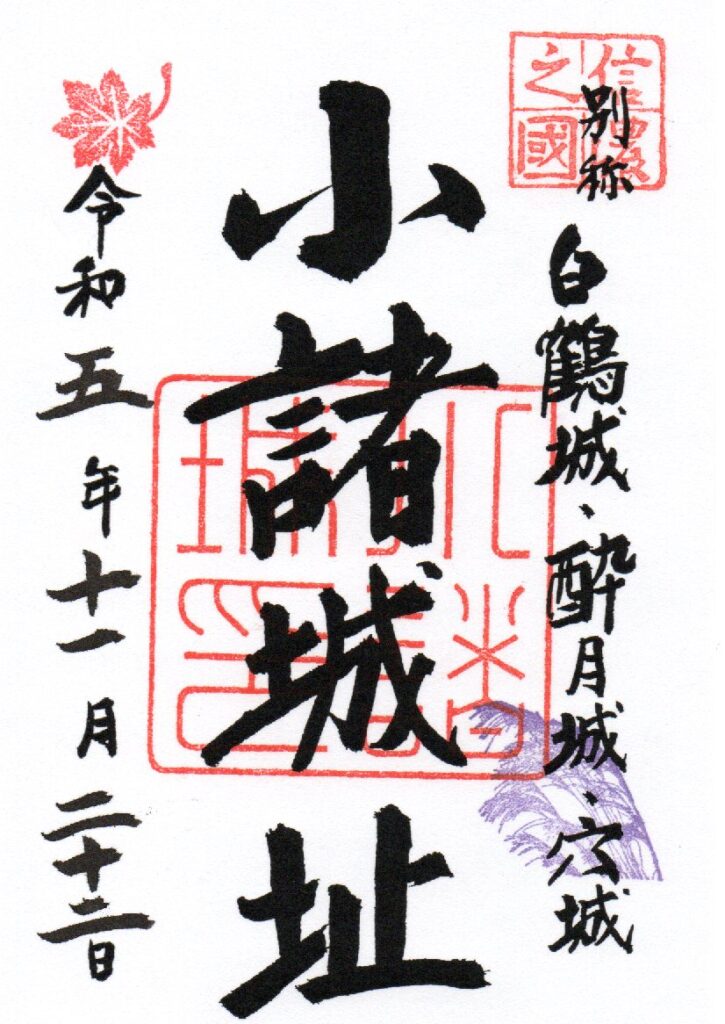 信濃之國
別称 白鶴城、酔月城、穴城
小諸城址
令和五年十一月二十二日